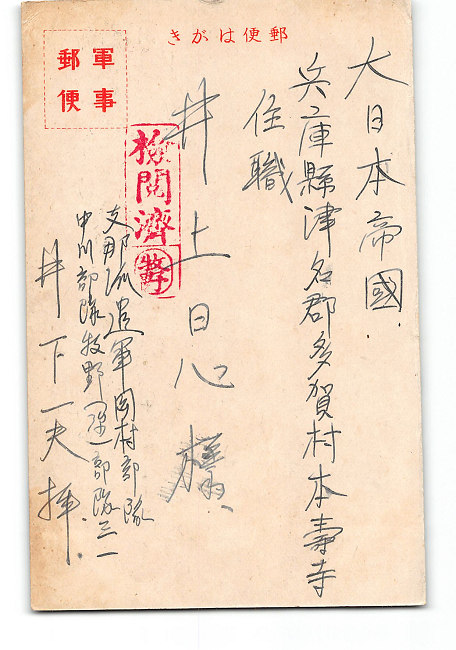 郵便はがき
軍事
郵便
大日本帝國
兵庫縣津名郡多賀村本壽寺
住職
井上日心様
検閲濟
支那派遣軍岡村部隊
中川部隊牧野(隆)部隊三一
井下一夫拝